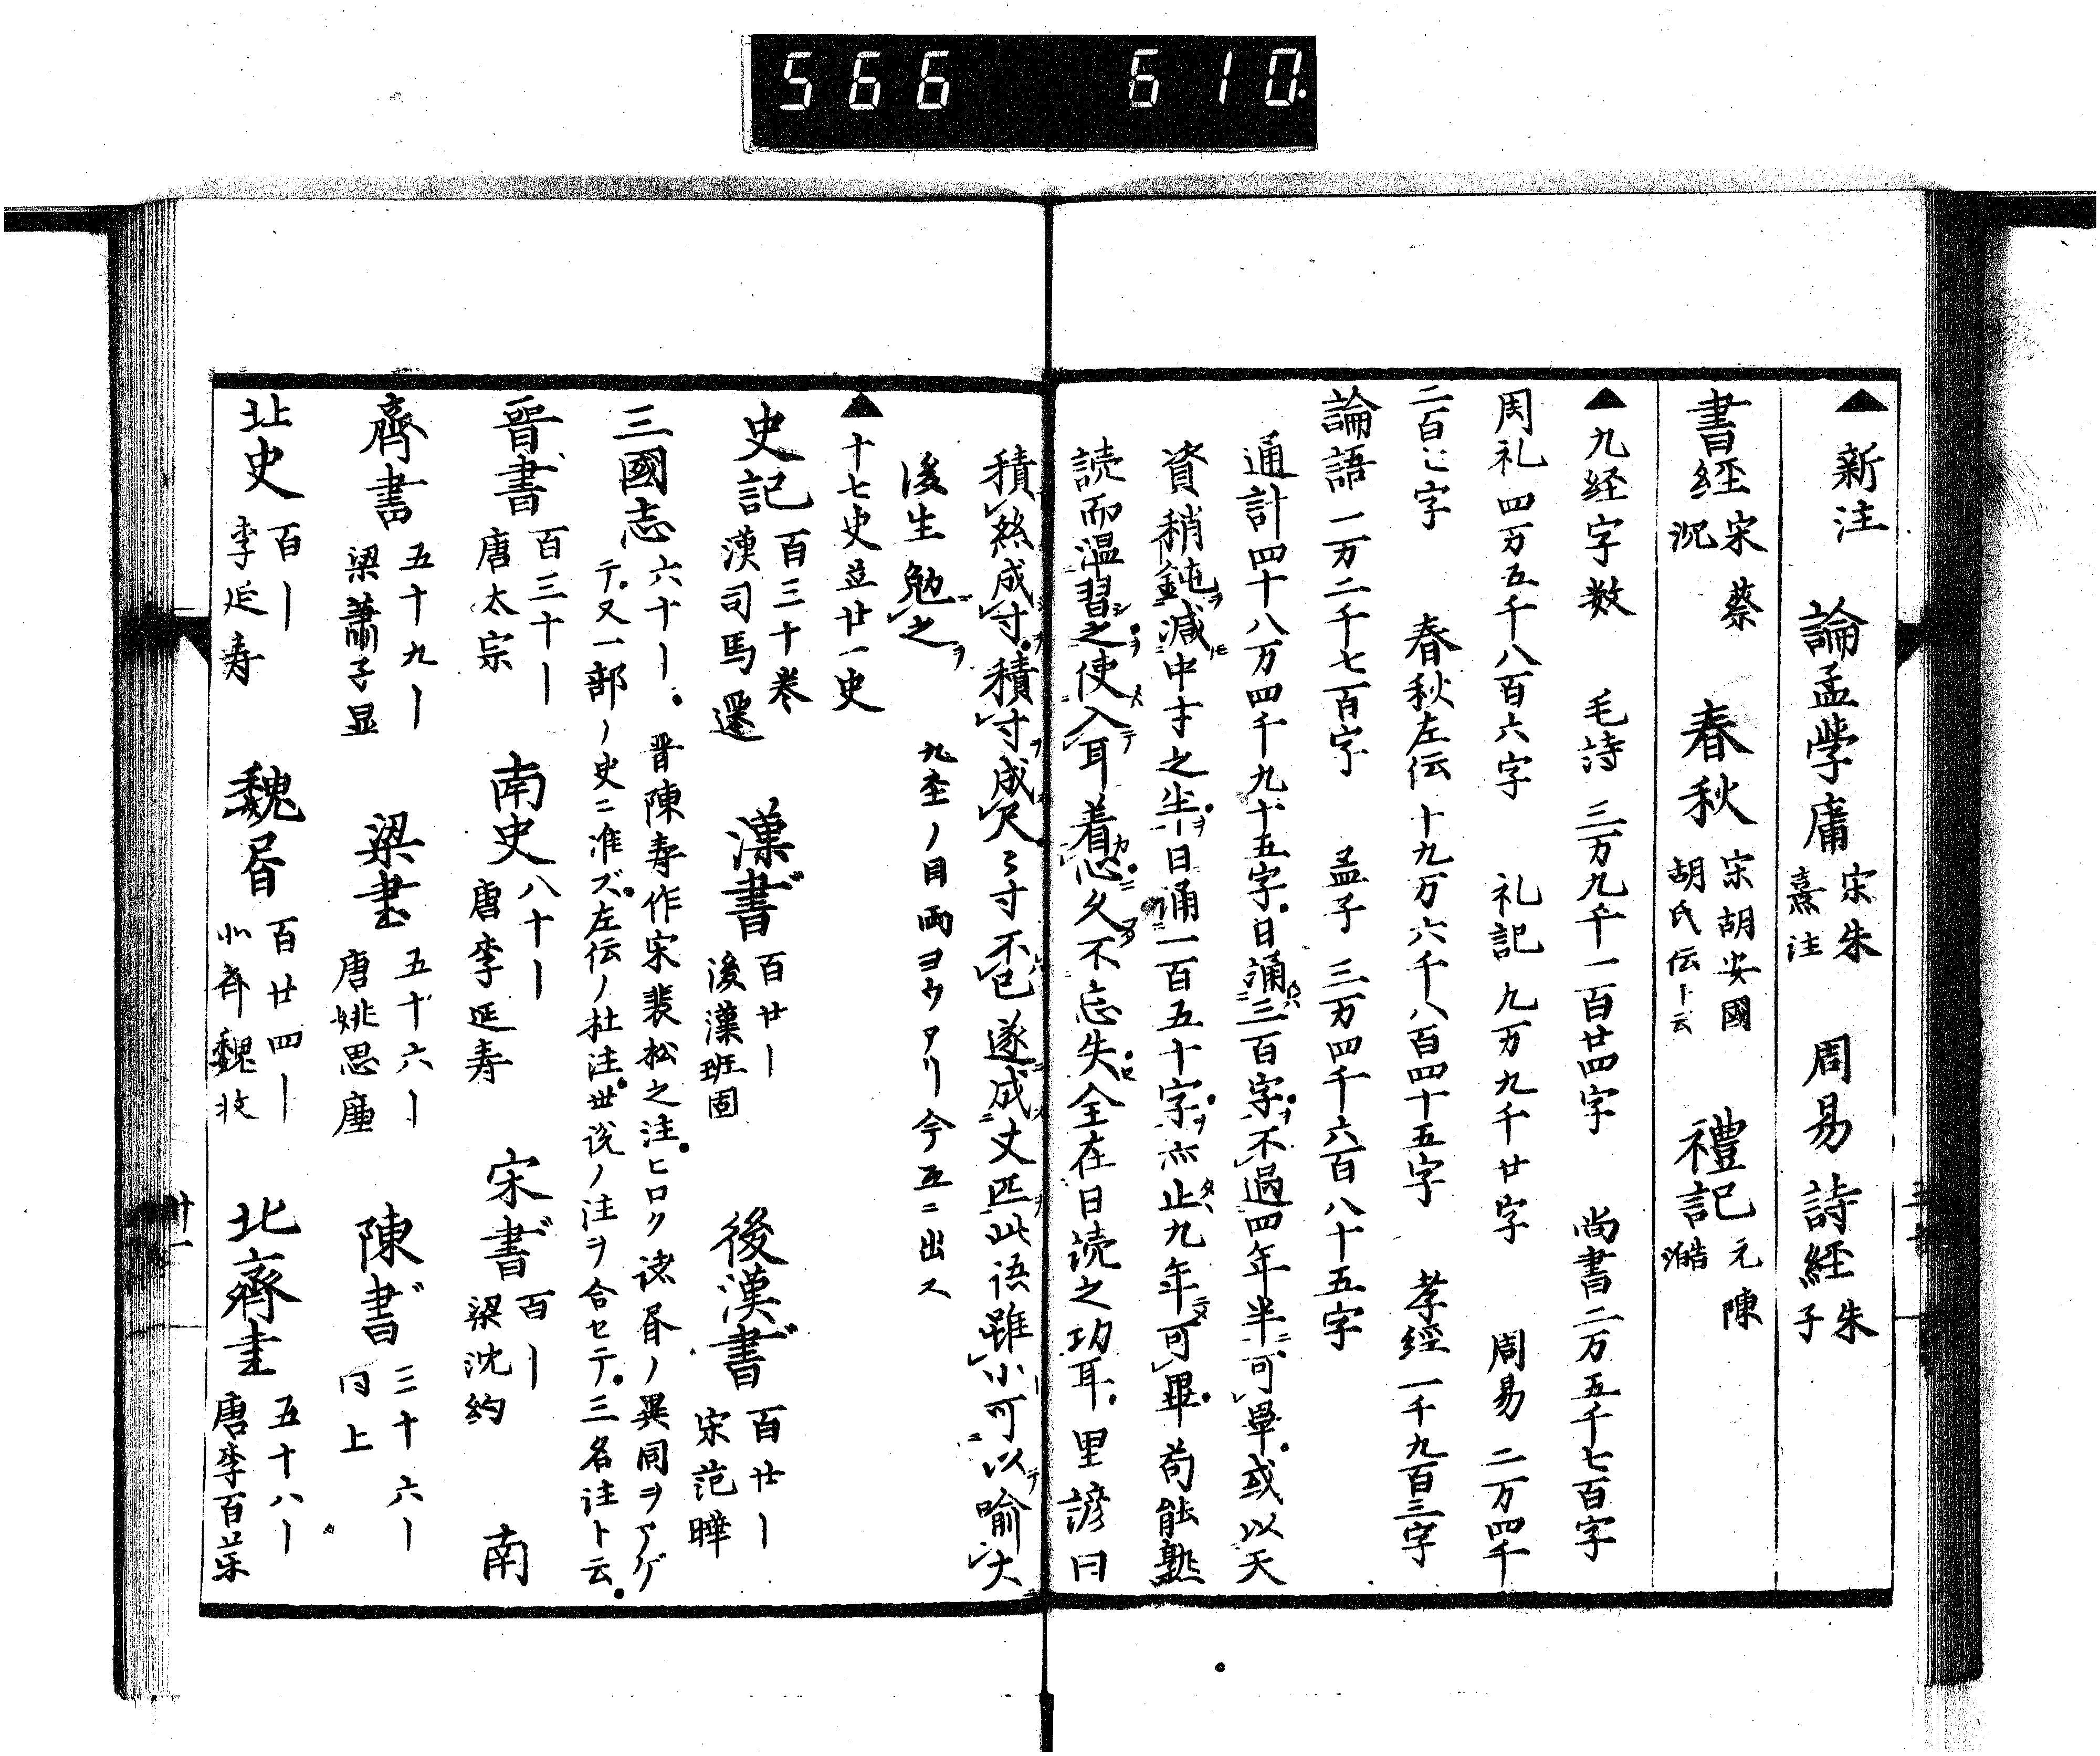 566 610.
▲新注 論孟学庸 宋朱熹注 周易 詩経 朱子
書経 宋蔡沉 春秋 宋胡安國 胡氏伝ト云 禮記 元陳澔
▲九経字数 毛詩 三万九千一百廿四字 尚書 二万五千七百字
周礼 四万五千八百六字 礼記 九万九千廿字 周易 二万四千
二百七字 春秋左伝 十九万六千八百四十五字 孝經 一千九百三字
論語 一万二千七百字 孟子 三万四千六百八十五字
通計四十八万四千九十五字日誦三百字不過四年半可畢或以天
資稍鈍減中才之半日誦一百五十字亦止九年可畢苟能熟
読而温習之使入耳着心久不忘失全在日読之功耳里諺曰
積絲成寸積寸成尺ミ寸不已遂成丈匹此语雖小可以喻大
後生勉之 九 ノ目両ヨウアリ今互ニ出ス
▲十七史並廿一史
史記 百三十巻 漢司馬遷 漢書 百廿〡 後漢班固 後漢書 百廿〡 宋范曄
三國志 六十〡 晋陳寿作宋裴松之注ヒロク諸書ノ異同ヲアゲ
テ又一部ノ史ニ准ズ左伝ノ杜注世説ノ注ヲ合セテ三名注ト云
晋書 百三十〡 唐太宗 南史 八十〡 唐李延寿 宋書 百〡 梁沈約 南
齊書 五十九〡 梁蕭子显 梁書 五十六〡 唐姚思廉 陳書 三十六〡 同上
北史 百〡 李延寿 魏書 百廿四〡 北斉魏收 北齊書 五十八〡 唐李百薬
廿一